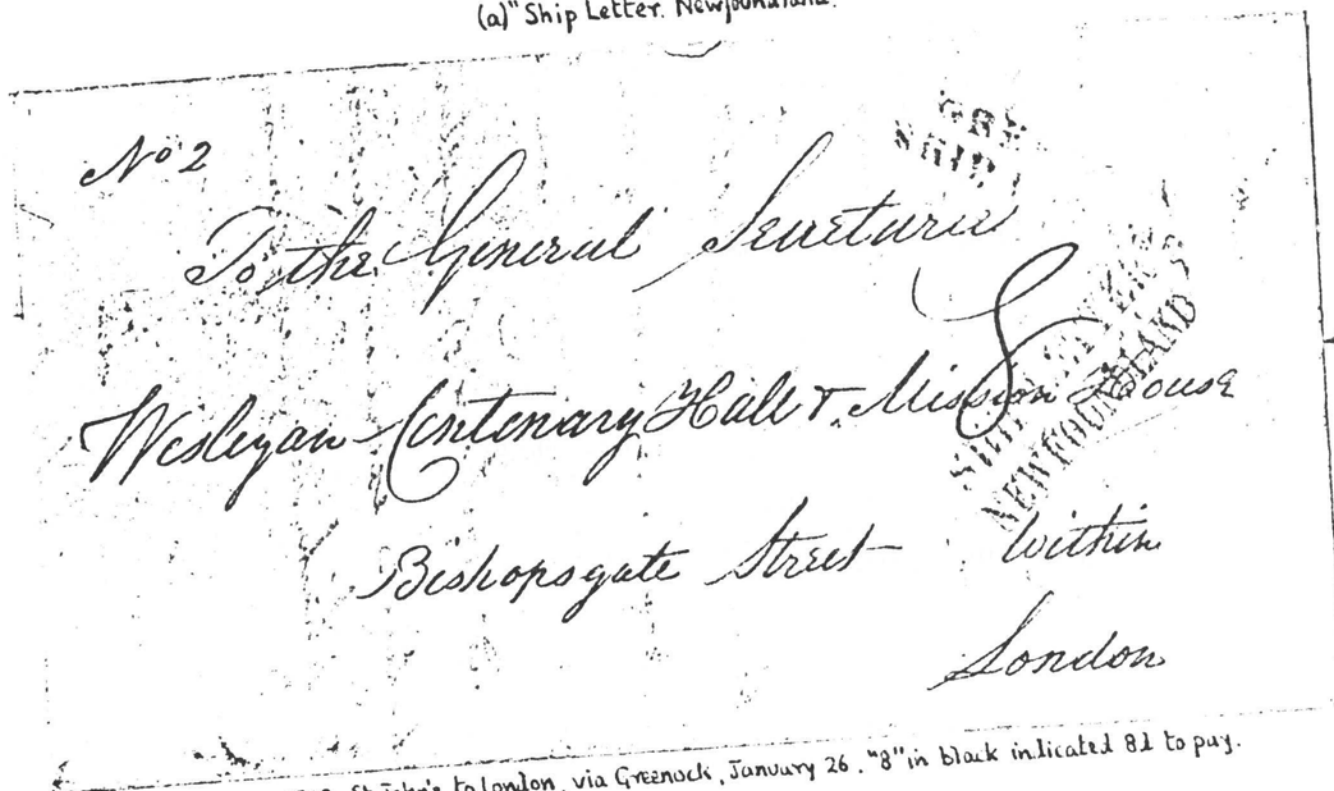 (a)" Ship Letter. Newfoundland.
No 2
SHIP
To the General Secretaries
8
NEWFOUNDLAND
Wesleyan Centenary Hall & Mission House
Bishopsgate Street Within
London
St John's to London, via Greenock, January 26. "8" in black indicated 8d to pay.